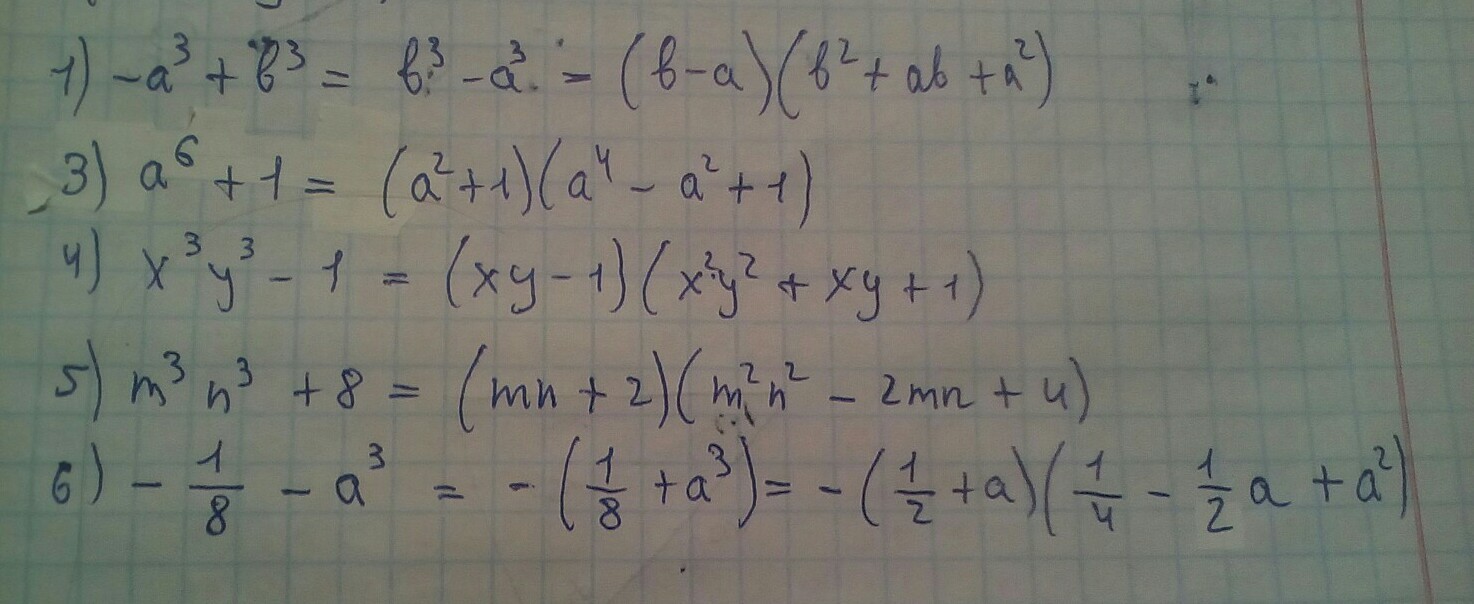 1) -a³ + b³ = b³ - a³ = (b-a)(b² + ab + a²)
3) a⁶ + 1 = (a²+1)(a⁴ - a² + 1)
4) x³y³ - 1 = (xy-1)(x²y² + xy + 1)
5) m³n³ + 8 = (mn + 2)(m²n² - 2mn + 4)
6) - 1/8 - a³ = - (1/8 + a³) = - (1/2 + a)(1/4 - 1/2 a + a²)